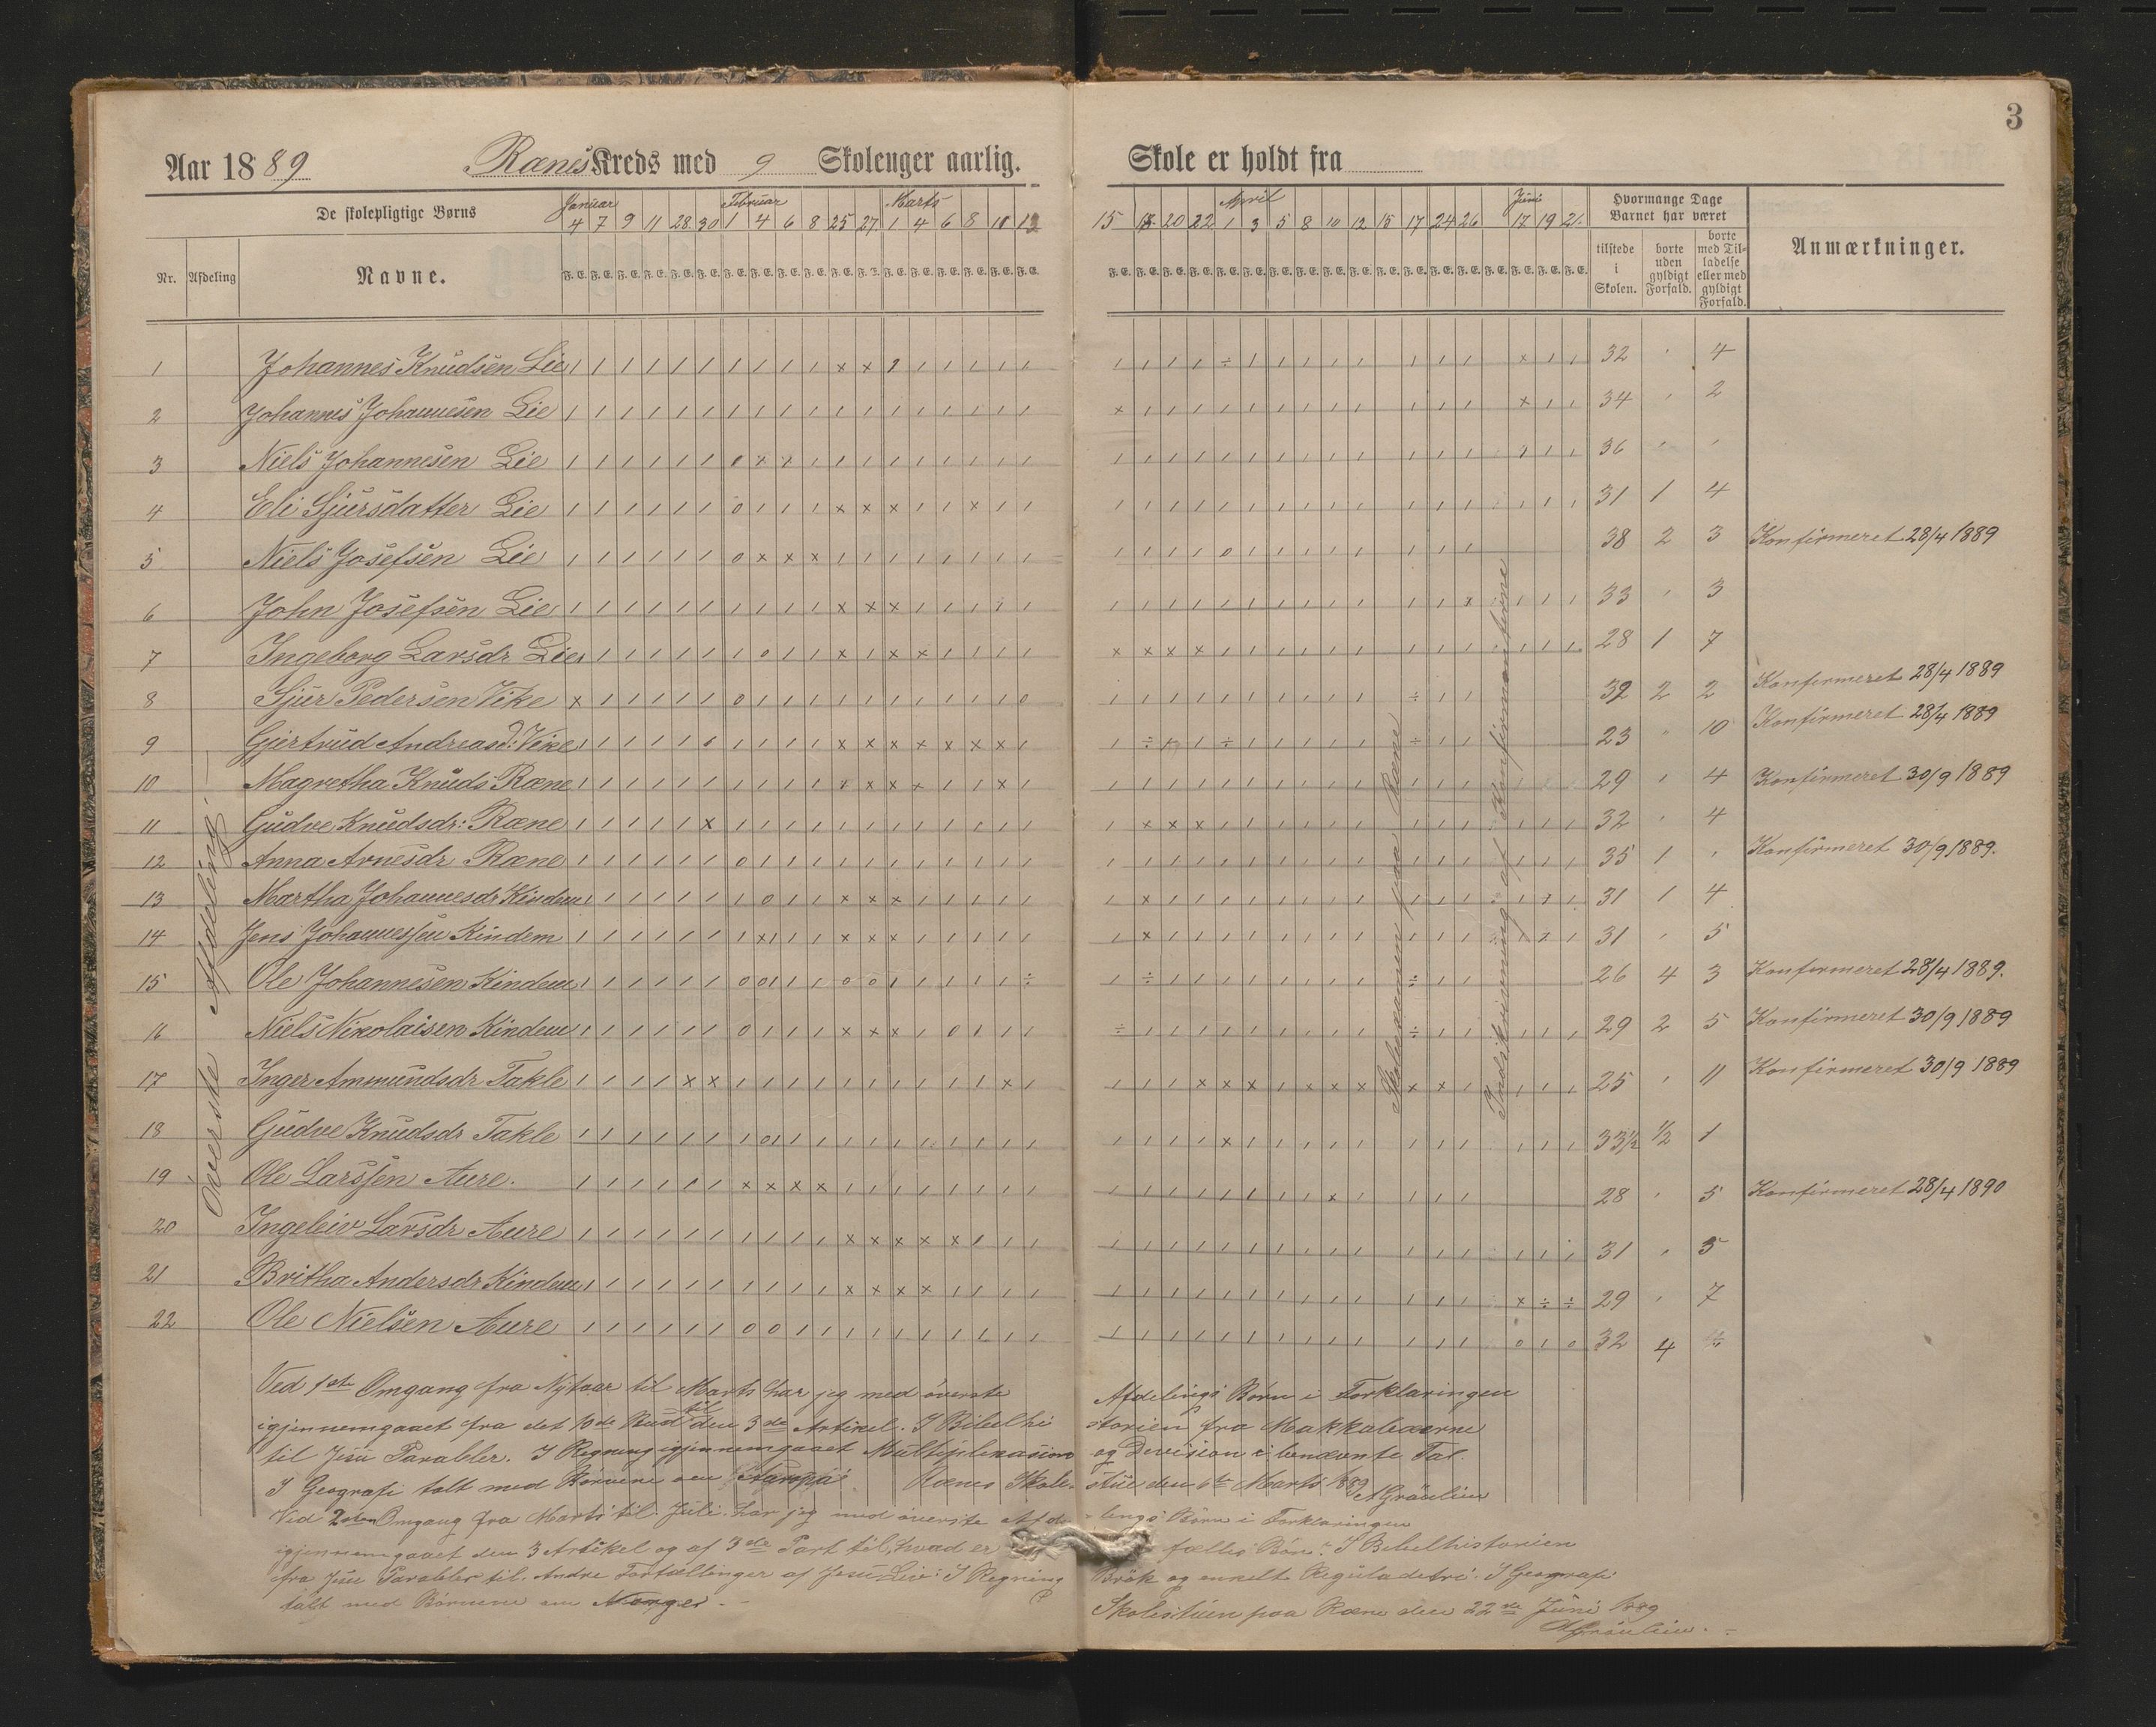 3
Aar 1889 Rænes Kreds med 9 Skoleuger aarlig. Skole er holdt fra
De skolepligtige Børns Januar Februar Marts April Juni Hvormange Dage Barnet har været
4 7 9 11 28 30 1 4 6 8 25 27 1 4 6 8 11 13 15 18 20 22 1 3 5 8 10 12 15 17 24 26 17 19 21
Nr. Afdeling Navne. tilstede i Skolen. borte uden gyldigt Forfald. borte med Tilladelse eller med gyldigt Forfald. Anmærkninger.
Överste Afdeling.
Skoleexamen paa Ræne
Indskrivning af Konfirmanterne
1 Johannes Knudsen Lie 32 " 4
2 Johannes Johannesen Lie 34 " 2
3 Niels Johannesen Lie 36 " "
4 Eli Sjursdatter Lie 31 1 4
5 Niels Josefsen Lie 38 2 3 Konfirmeret 28/4 1889
6 John Josefsen Lie 33 " 3
7 Ingeborg Larsdr Lie 28 1 7
8 Sjur Pedersen Vike 32 2 2 Konfirmeret 28/4 1889
9 Gjertrud Andreasd: Vike 23 " 10 Konfirmeret 28/4 1889
10 Magretha Knuds Ræne 29 " 4 Konfirmeret 30/9 1889
11 Gudve Knudsdr: Ræne 32 " 4
12 Anna Arnesdr Ræne 35 1 " Konfirmeret 30/9 1889.
13 Martha Johannesdr Kindem 31 1 4
14 Jens Johannessen Kindem 31 " 5
15 Ole Johannesen Kindem 26 4 3 Konfirmeret 28/4 1889.
16 Niels Nikolaisen Kindem 29 2 5 Konfirmeret 30/9 1889
17 Inger Ammundsdr Takle 25 " 11 Konfirmeret 30/9 1889
18 Gudve Knudsdr Takle 33 1/2 1/2 1
19 Ole Larssen Aure. 28 " 5 Konfirmeret 28/4 1890
20 Ingeleiv Larsdr Aure 31 " 5
21 Britha Andersdr Kindem 29 " 7
22 Ole Nielsen Aure 32 4
Ved 1ste Omgang fra Nytaar til Marts har jeg med överste Afdelings Børn i Forklaringen
igjennemgaaet fra det 10de Bud til den 3de Artikel. I Bibelhistorien fra Makkabæerne
til Jesu Parabler. I Regning igjennemgaaet Multiplikasion og Devision i benævnte Tal.
I Geografi talt med Börnene om Europa. Rænes Skolestue den 6te Marts 1889 A Gräulien
Ved 2den Omgang fra Marts til Juli har jeg med överste Afdelings Börn i Forklaringen
igjennemgaaet den 3 Artikel og af 3de Part til, hvad er fælles Bön". I Bibelhistorien
fra Jesu Parabler til Andre Fortællinger af Jesu Liv. I Regning Brök og enkelt Reguladetri. I Geografi
talt med Börnene om Norge. Skolestuen paa Ræne den 22de Juni 1889
A Gräulien.